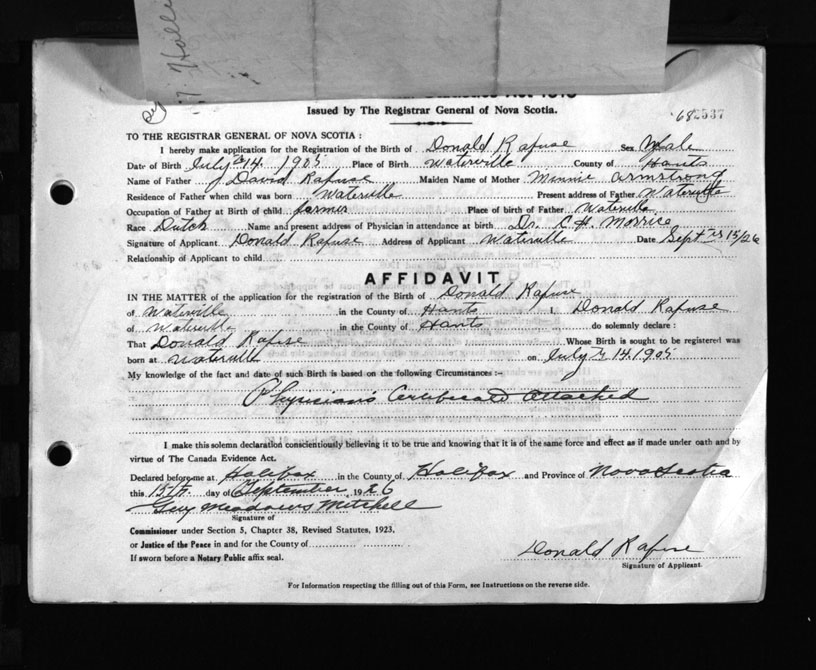 Halli
Issued by The Registrar General of Nova Scotia.
682537
TO THE REGISTRAR GENERAL OF NOVA SCOTIA :
I hereby make application for the Registration of the Birth of Donald Rafuse Sex Male
Date of Birth July 14 1905 Place of Birth Waterville County of Hants
Name of Father J David Rafuse Maiden Name of Mother Minnie Armstrong
Residence of Father when child was born Waterville Present address of Father Waterville
Occupation of Father at Birth of child farmer Place of birth of Father Waterville
Race Dutch Name and present address of Physician in attendance at birth Dr. C H. Morrice
Signature of Applicant Donald Rafuse Address of Applicant Waterville Date Sept 15/26
Relationship of Applicant to child
AFFIDAVIT
IN THE MATTER of the application for the registration of the Birth of Donald Rafuse
of Waterville in the County of Hants I, Donald Rafuse
of Waterville in the County of Hants do solemnly declare :
That Donald Rafuse Whose Birth is sought to be registered was
born at Waterville on July 14, 1905
My knowledge of the fact and date of such Birth is based on the following Circumstances :—
Physician's Certificate Attached
I make this solemn declaration conscientiously believing it to be true and knowing that it is of the same force and effect as if made under oath and by
virtue of The Canada Evidence Act.
Declared before me at Halifax in the County of Halifax and Province of Nova Scotia
this 15th. day of September 1926
Guy Meadows Mitchell
Signature of
Commissioner under Section 5, Chapter 38, Revised Statutes, 1923,
or Justice of the Peace in and for the County of
If sworn before a Notary Public affix seal.
Donald Rafuse
Signature of Applicant.
For Information respecting the filling out of this Form, see Instructions on the reverse side.